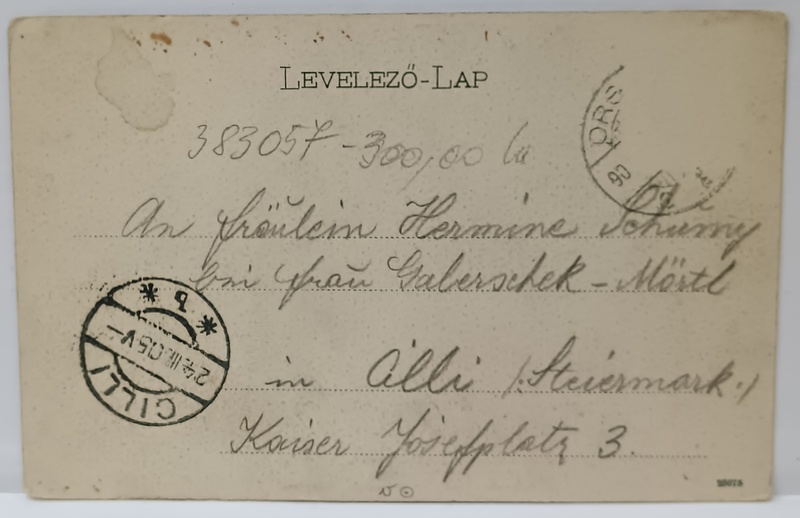 LEVELEZŐ-LAP
383057 - 300,00 lei
ORS
An Fräulein Hermine Schumy
bei Frau Gaberschek - Mörtl
in Cilli /:Steiermark.:/
Kaiser Josefplatz 3.
CILLI
24.III.05.V-
* b *